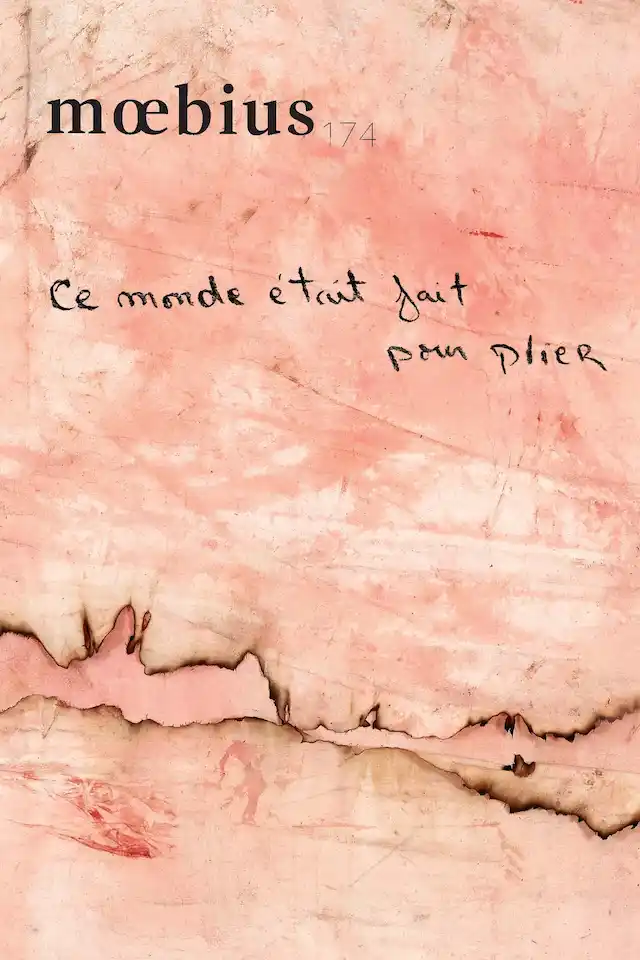 mœbius 174
Ce monde était fait
pour plier